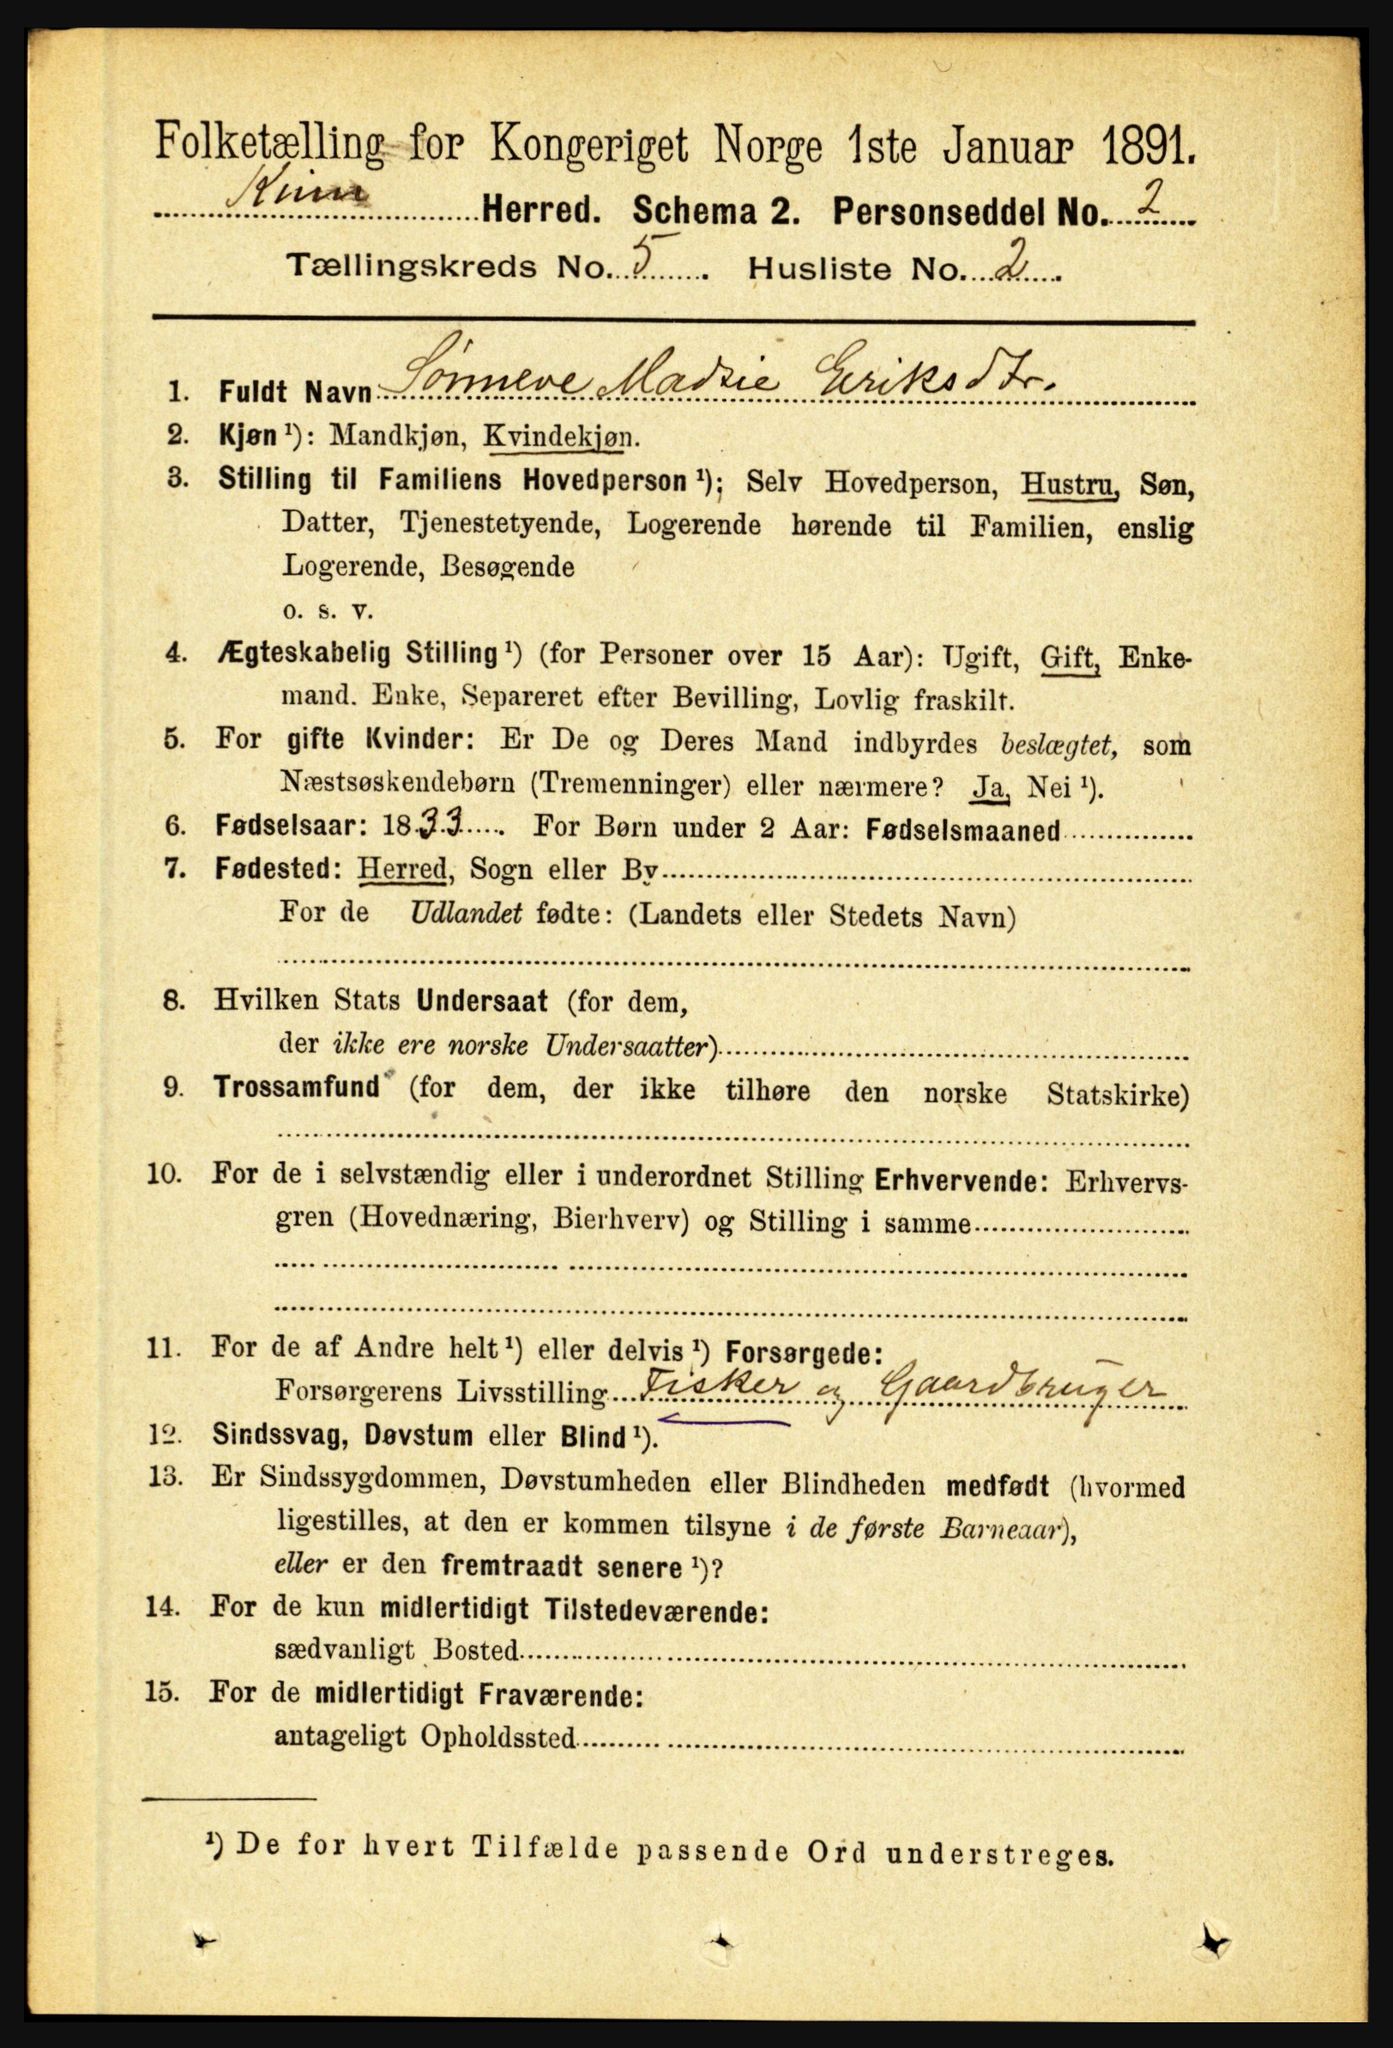 Folketælling for Kongeriget Norge 1ste Januar 1891.
Kinn Herred. Schema 2. Personseddel No. 2
Tællingskreds No. 5. Husliste No. 2.
1. Fuldt Navn Sønneve Madsie Eriksdtr.
2. Kjøn ¹): Mandkjøn, Kvindekjøn.
3. Stilling til Familiens Hovedperson ¹); Selv Hovedperson, Hustru, Søn,
Datter, Tjenestetyende, Logerende hørende til Familien, enslig
Logerende, Besøgende
o. s. v.
4. Ægteskabelig Stilling ¹) (for Personer over 15 Aar): Ugift, Gift, Enke-
mand. Enke, Separeret efter Bevilling, Lovlig fraskilt.
5. For gifte Kvinder: Er De og Deres Mand indbyrdes beslægtet, som
Næstsøskendebørn (Tremenninger) eller nærmere? Ja, Nei ¹).
6. Fødselsaar: 1833. For Børn under 2 Aar: Fødselsmaaned
7. Fødested: Herred, Sogn eller By
For de Udlandet fødte: (Landets eller Stedets Navn)
8. Hvilken Stats Undersaat (for dem,
der ikke ere norske Undersaatter)
9. Trossamfund (for dem, der ikke tilhøre den norske Statskirke)
10. For de i selvstændig eller i underordnet Stilling Erhvervende: Erhvervs-
gren (Hovednæring, Bierhverv) og Stilling i samme
11. For de af Andre helt ¹) eller delvis ¹) Forsørgede:
Forsørgerens Livsstilling Fisker og Gaardbruger
12. Sindssvag, Døvstum eller Blind ¹).
13. Er Sindssygdommen, Døvstumheden eller Blindheden medfødt (hvormed
ligestilles, at den er kommen tilsyne i de første Barneaar),
eller er den fremtraadt senere ¹)?
14. For de kun midlertidigt Tilstedeværende:
sædvanligt Bosted
15. For de midlertidigt Fraværende:
antageligt Opholdssted
¹) De for hvert Tilfælde passende Ord understreges.